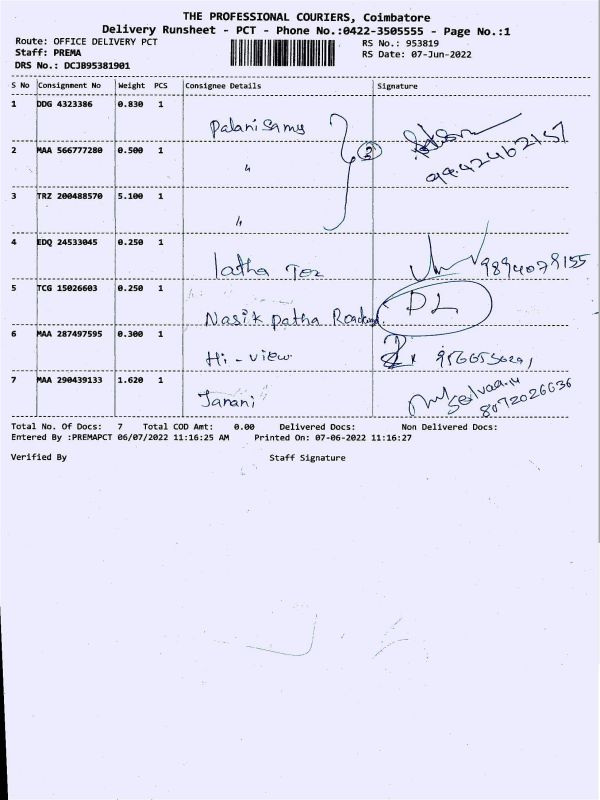 THE PROFESSIONAL COURIERS, Coimbatore
Delivery Runsheet - PCT - Phone No.:0422-3505555 - Page No.:1
Route: OFFICE DELIVERY PCT
Staff: PREMA
DRS No.: DCJB95381901
RS No.: 953819
RS Date: 07-Jun-2022
S No Consignment No Weight PCS Consignee Details Signature
1 DDG 4323386 0.830 1
Palanisamy
2 MAA 566777280 0.500 1
"
3 TRZ 200488570 5.100 1
"
4 EDQ 24533045 0.250 1
latha Tex 9894079155
5 TCG 15026603 0.250 1
Nasik Patha DL
6 MAA 287497595 0.300 1
Hi - view
7 MAA 290439133 1.620 1
Janani 8072026636
Total No. Of Docs: 7 Total COD Amt: 0.00 Delivered Docs: Non Delivered Docs:
Entered By :PREMAPCT 06/07/2022 11:16:25 AM Printed On: 07-06-2022 11:16:27
Verified By Staff Signature